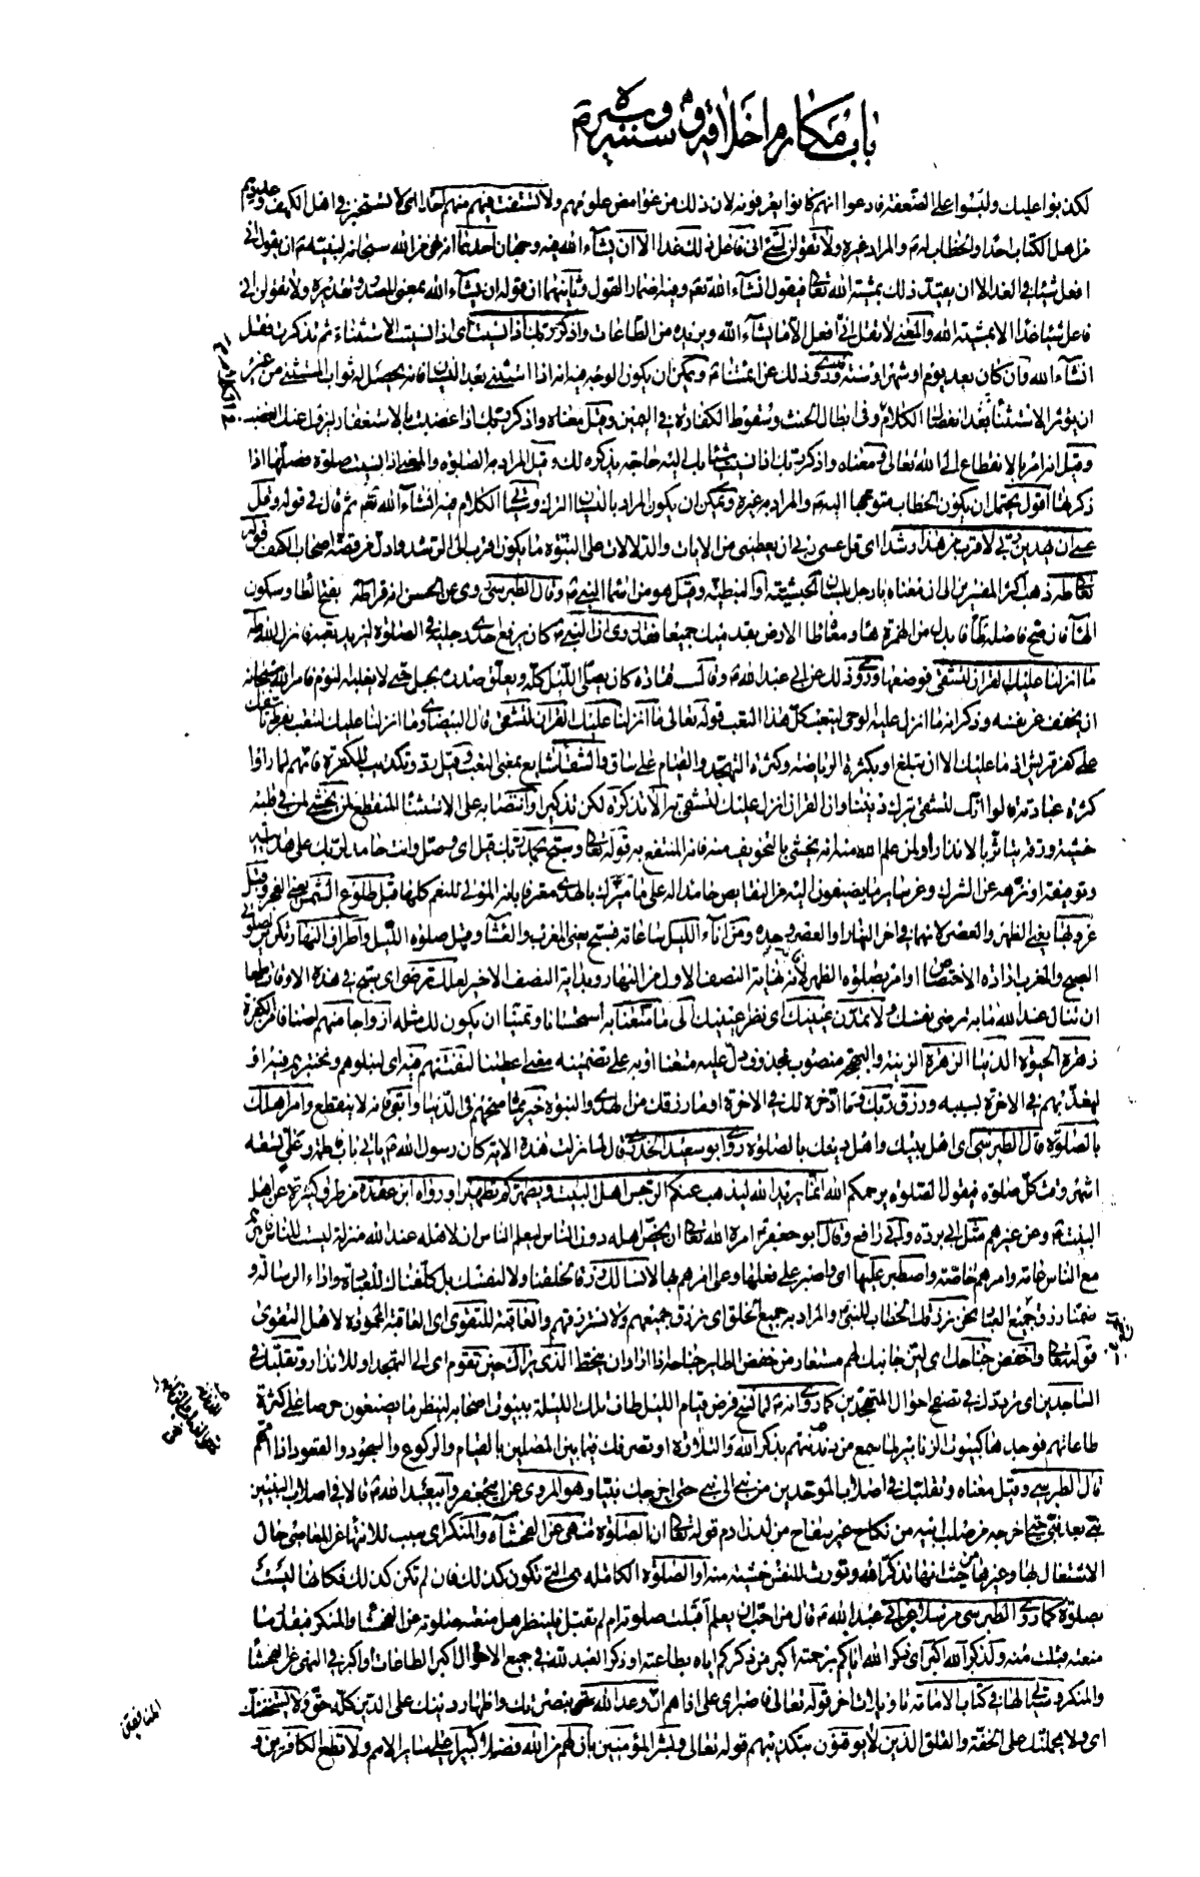 باب مكارم اخلاقه وسيره وسننه ص
لكذبوا عليك ولبسوا على الضعفة فادعوا انهم كانوا يعرفونه لان ذلك من غوامض علومهم ولا تستفت فيهم منهم احدا اى لا تستخبر فى اهل الكهف وعددهم
من اهل الكتاب احدا والخطاب له ص والمراد غيره ولا تقولن لشئ انى فاعل ذلك غدا الا ان يشآء الله فيه وجهان احدهما انه نهى من الله سبحانه لنبيه ص ان يقول انى
افعل شيئا فى الغد الا ان يقيد ذلك بمشية الله تعالى فيقول انشآء الله تعه وفيه اضمار القول وثانيهما ان قوله ان يشآء الله بمعنى المصدر وتقديره ولا تقولن انى
فاعل شيئا غدا الا بمشية الله والمعنى لا تقل انى افعل الا ما يشآء الله ويريده من الطاعات واذكر ربك اذا نسيت اى اذا نسيت الاستثناء ثم تذكرت فقل
انشآء الله وان كان بعد يوم او شهر او سنة وقد روى ذلك عن ائمتنا ع ويمكن ان يكون الوجه فيه انه اذا استثنى بعد النسيان فانه يحصل له ثواب المستثنى من غير
ان يؤثر الاستثنا بعد انفصال الكلام فى ابطال الحنث وسقوط الكفارة فى اليمين وقيل معناه واذكر ربك اذا غضبت بالاستغفار ليزول عنك الغضب
وقيل انه امر بالانقطاع الى الله تعالى ومعناه واذكر ربك اذا نسيت شيئا بك اليه حاجة يذكره لك وقيل المراد به الصلوة والمعنى اذا نسيت صلوة فصلها اذا
ذكرتها اقول يحتمل ان يكون الخطاب متوجها اليه ص والمراد به غيره ويمكن ان يكون المراد بالنسيان الترك
عسى ان يهدين ربى لاقرب من هذا رشدا اى قل عسى ربى ان يعطينى من الايات والدلالات على النبوة ما يكون اقرب الى الرشد وادل من قصة اصحاب الكهف قوله
تعالى طه ذهب اكثر المفسرين الى ان معناه يا رجل بلسان الحبشية او النبطية وقيل هو من اسماء النبى ص وقال الطبرسى روى عن الحسن انه قرا طه بفتح الطا وسكون
الهآء فان صح فاصله طأ فابدل من الهمزة هآء ومعناه طأ الارض بقدميك جميعا فقد روى ان النبى ص كان يرفع احدى رجليه فى الصلوة ليزيد تعبه فانزل الله طه
ما انزلنا عليك القران لتشقى فوضعها وروى ذلك عن ابى عبد الله ع وقال قتادة كان يصلى الليل كله ويعلق صدره بحبل حتى لا يغلبه النوم فامره الله سبحانه
ان يخفف عن نفسه وذكر انه ما انزل عليه الوحى ليتعب كل هذا التعب قوله تعالى ما انزلنا عليك القران لتشقى قال البيضاوى ما انزلنا عليك لتتعب بفرط تاسفك
على كفر قريش اذ ما عليك الا ان تبلغ او بكثرة الرياضة وكثرة التهجد والقيام على ساق والشقا شايع بمعنى التعب وقيل رد وتكذيب للكفرة فانهم لما راوا
كثرة عبادته قالوا انك لتشقى بترك ديننا وان القران انزل عليك لتشقى به الا تذكرة لكن تذكيرا وانتصابه على الاستثنا المنقطع لمن يخشى لمن فى قلبه
خشية ورقة يتاثر بالانذار او لمن علم الله منه انه يخشى بالتخويف منه فانه المنتفع به قوله تعالى وسبح بحمد ربك قيل اى وصل وانت حامد لربك على هدايته
وتوفيقه او نزهه عن الشرك وعن ساير ما يضيفون اليه من النقايص حامدا له على ما ميزك بالهدى معترفا بانه المولى للنعم كلها قبل طلوع الشمس يعنى الفجر وقبل
غروبها يعنى الظهر والعصر لانهما فى اخر النهار او العصر وحده ومن اناء الليل ساعاته فسبح يعنى المغرب والعشآء وقيل صلوة الليل واطراف النهار تكرير لصلوتى
الصبح والمغرب ارادة الاختصاص او امر بصلوة الظهر لانه نهاية النصف الاول من النهار وبداية النصف الاخير لعلك ترضى اى سبح فى هذه الاوقات طمعا
ان تنال عند الله ما به ترضى نفسك ولا تمدن عينيك اى نظر عينيك الى ما متعنا به استحسانا وتمنيا ان يكون لك مثله ازواجا منهم اصنافا من الكفرة
زهرة الحيوة الدنيا الزهرة الزينة والبهجة منصوب بمحذوف دل عليه متعنا او به على تضمينه معنى اعطينا لنفتنهم فيه اى لنبلوهم ونختبرهم فيه او
لنعذبهم فى الاخرة بسببه ورزق ربك وما ادخره لك فى الاخرة او ما رزقك من الهدى والنبوة خير مما منحهم فى الدنيا وابقى فانه لا ينقطع وامر اهلك
بالصلوة قال الطبرسى اى اهل بيتك واهل دينك بالصلوة روى ابو سعيد الخدرى قال لما نزلت هذه الاية كان رسول الله ص ياتى باب فاطمة وعلى تسعة
اشهر وقت كل صلوة فيقول الصلوة يرحمكم الله انما يريد الله ليذهب عنكم الرجس اهل البيت ويطهركم تطهيرا ورواه ابن عقدة من طرق كثيرة عن اهل
البيت ع وعن غيرهم مثل ابى برده وابى رافع وقال ابو جعفر ع امره الله تعالى ان يخص اهله دون الناس ليعلم الناس ان لاهله عند الله منزلة ليست للناس فامرهم
مع الناس عامة وامرهم خاصة واصطبر عليها اى واصبر على فعلها وعلى امرهم بها لا نسالك رزقا لخلقنا ولا لنفسك بل كلفناك للعبادة واداء الرسالة و
ضمنا رزق جميع العباد نحن نرزقك الخطاب للنبى ص والمراد به جميع الخلق اى نرزق جميعهم ولا نسترزقهم والعاقبة للتقوى اى العاقبة المحمودة لاهل التقوى
قوله تعالى واخفض جناحك اى لين جانبك لهم مستعار من خفض الطاير جناحه اذا اراد ان ينحط الذى يراك حين تقوم اى الى التهجد او للانذار وتقلبك فى
الساجدين اى ترددك فى تصفح احوال المتهجدين كما روى انه ص لما نسخ فرض قيام الليل طاف تلك الليلة ببيوت اصحابه لينظر ما يصنعون حرصا على كثرة
طاعاتهم فوجدها كبيوت الزنابير لما سمع من دندنتهم بذكر الله والتلاوة او تصرفك فيما بين المصلين بالقيام والركوع والسجود والقعود اذا اممتهم
قال الطبرسى وقيل معناه وتقلبك فى اصلاب الموحدين من نبى الى نبى حتى اخرجك نبيا وهو المروى عن ابى جعفر وابى عبد الله ع قالا فى اصلاب النبيين
نبى بعد نبى حتى اخرجه من صلب ابيه من نكاح غير سفاح من لدن ادم قوله تعالى ان الصلوة تنهى عن الفحشآء والمنكر اى سبب للانتهاء عن المعاصى حال
الاشتغال بها وغيرها من حيث انها تذكر الله وتورث للنفس خشية منه او الصلوة الكاملة هى التى تكون كذلك فان لم تكن كذلك فكانها ليست
بصلوة كما روى الطبرسى مرسلا عن ابى عبد الله ع قال من احب ان يعلم اقبلت صلوته ام لم تقبل فلينظر هل منعته صلوته عن الفحشا والمنكر فبقدر ما
منعته قبلت منه ولذكر الله اكبر اى ذكر الله اياكم برحمته اكبر من ذكركم اياه بطاعته او ذكر العبد لله فى جميع الاحوال اكبر الطاعات او اكبر فى النهى عن الفحشا
والمنكر وسياتى لها فى كتاب الامامة تاويلات اخر قوله تعالى فاصبر اى على اذاهم ان وعد الله حق بنصرتك واظهار دينك على الدين كله حق ولا يستخفنك
اى ولا يحملنك على الخفة والقلق الذين لا يوقنون بتكذيبهم قوله تعالى وبشر المؤمنين بان لهم من الله فضلا كبيرا على ساير الامم ولا تطع الكافرين و
المنافقين